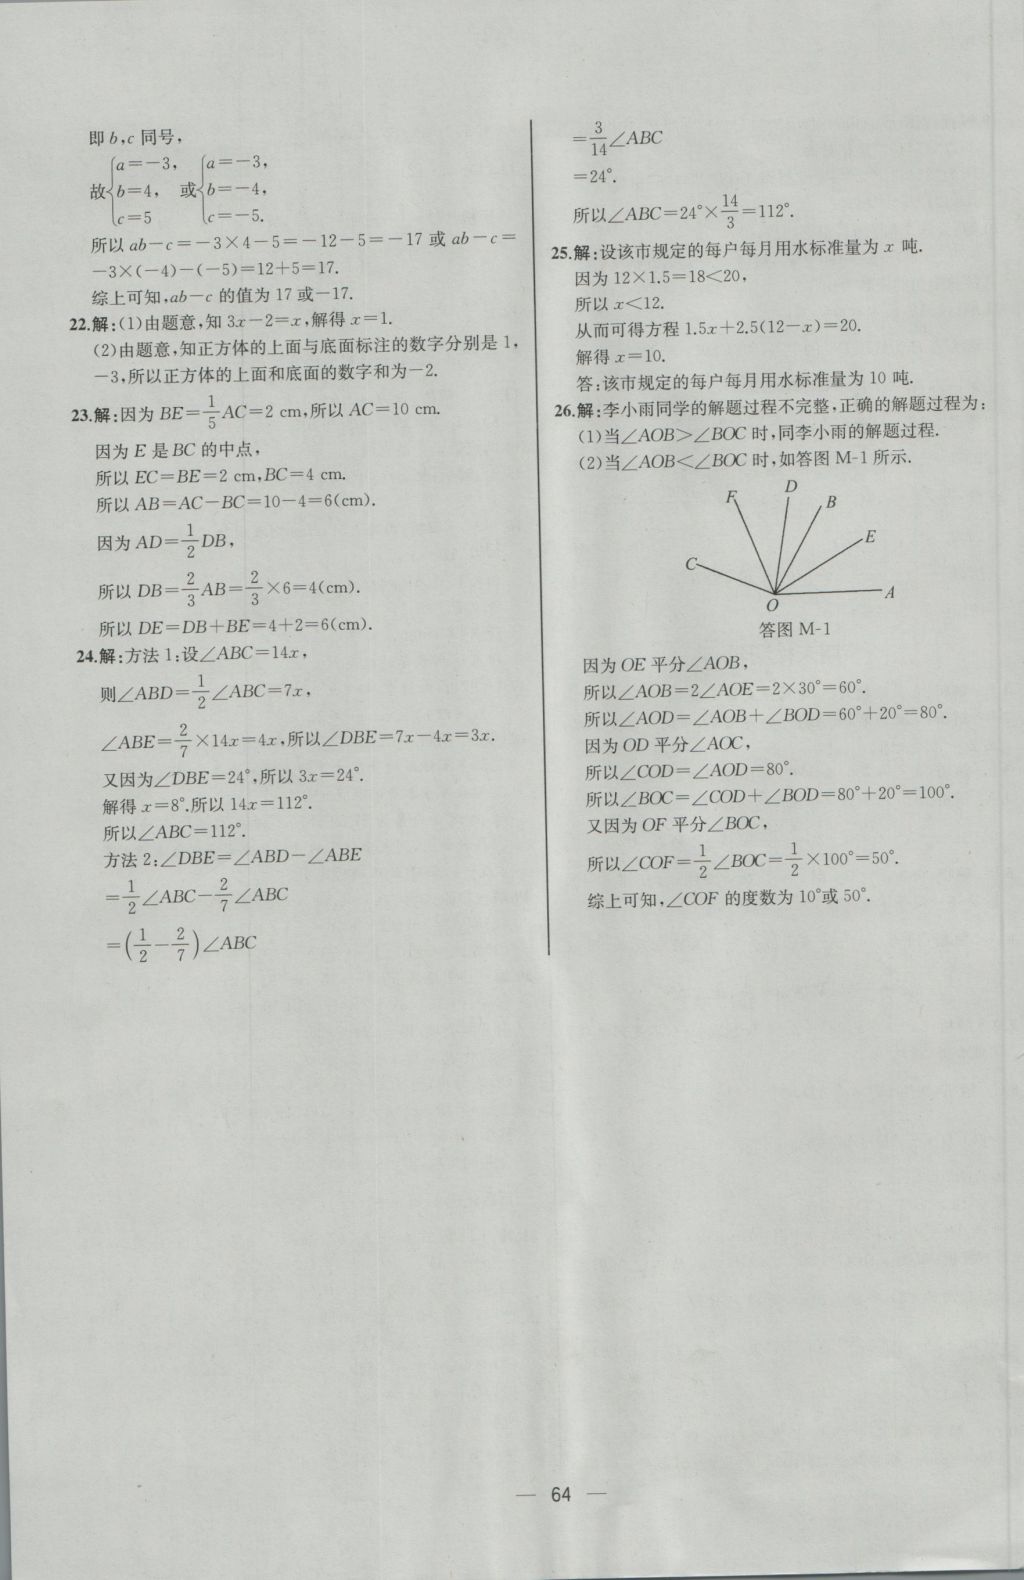 即 b,c 同号,
故{a=-3, b=4, c=5 或{a=-3, b=-4, c=-5.
所以 ab-c=-3×4-5=-12-5=-17 或 ab-c=
-3×(-4)-(-5)=12+5=17.
综上可知,ab-c 的值为 17 或-17.
22.解:(1)由题意,知 3x-2=x,解得 x=1.
(2)由题意,知正方体的上面与底面标注的数字分别是 1,
-3,所以正方体的上面和底面的数字和为-2.
23.解:因为 BE=1/5 AC=2 cm,所以 AC=10 cm.
因为 E 是 BC 的中点,
所以 EC=BE=2 cm,BC=4 cm.
所以 AB=AC-BC=10-4=6(cm).
因为 AD=1/2 DB,
所以 DB=2/3 AB=2/3×6=4(cm).
所以 DE=DB+BE=4+2=6(cm).
24.解:方法 1:设∠ABC=14x,
则∠ABD=1/2∠ABC=7x,
∠ABE=2/7×14x=4x,所以∠DBE=7x-4x=3x.
又因为∠DBE=24°,所以 3x=24°.
解得 x=8°.所以 14x=112°.
所以∠ABC=112°.
方法 2:∠DBE=∠ABD-∠ABE
=1/2∠ABC-2/7∠ABC
=(1/2-2/7)∠ABC
=3/14∠ABC
=24°.
所以∠ABC=24°×14/3=112°.
25.解:设该市规定的每户每月用水标准量为 x 吨.
因为 12×1.5=18<20,
所以 x<12.
从而可得方程 1.5x+2.5(12-x)=20.
解得 x=10.
答:该市规定的每户每月用水标准量为 10 吨.
26.解:李小雨同学的解题过程不完整,正确的解题过程为:
(1)当∠AOB>∠BOC 时,同李小雨的解题过程.
(2)当∠AOB<∠BOC 时,如答图 M-1 所示.
F
D
B
E
C
A
O
答图 M-1
因为 OE 平分∠AOB,
所以∠AOB=2∠AOE=2×30°=60°.
所以∠AOD=∠AOB+∠BOD=60°+20°=80°.
因为 OD 平分∠AOC,
所以∠COD=∠AOD=80°.
所以∠BOC=∠COD+∠BOD=80°+20°=100°.
又因为 OF 平分∠BOC,
所以∠COF=1/2∠BOC=1/2×100°=50°.
综上可知,∠COF 的度数为 10°或 50°.
— 64 —